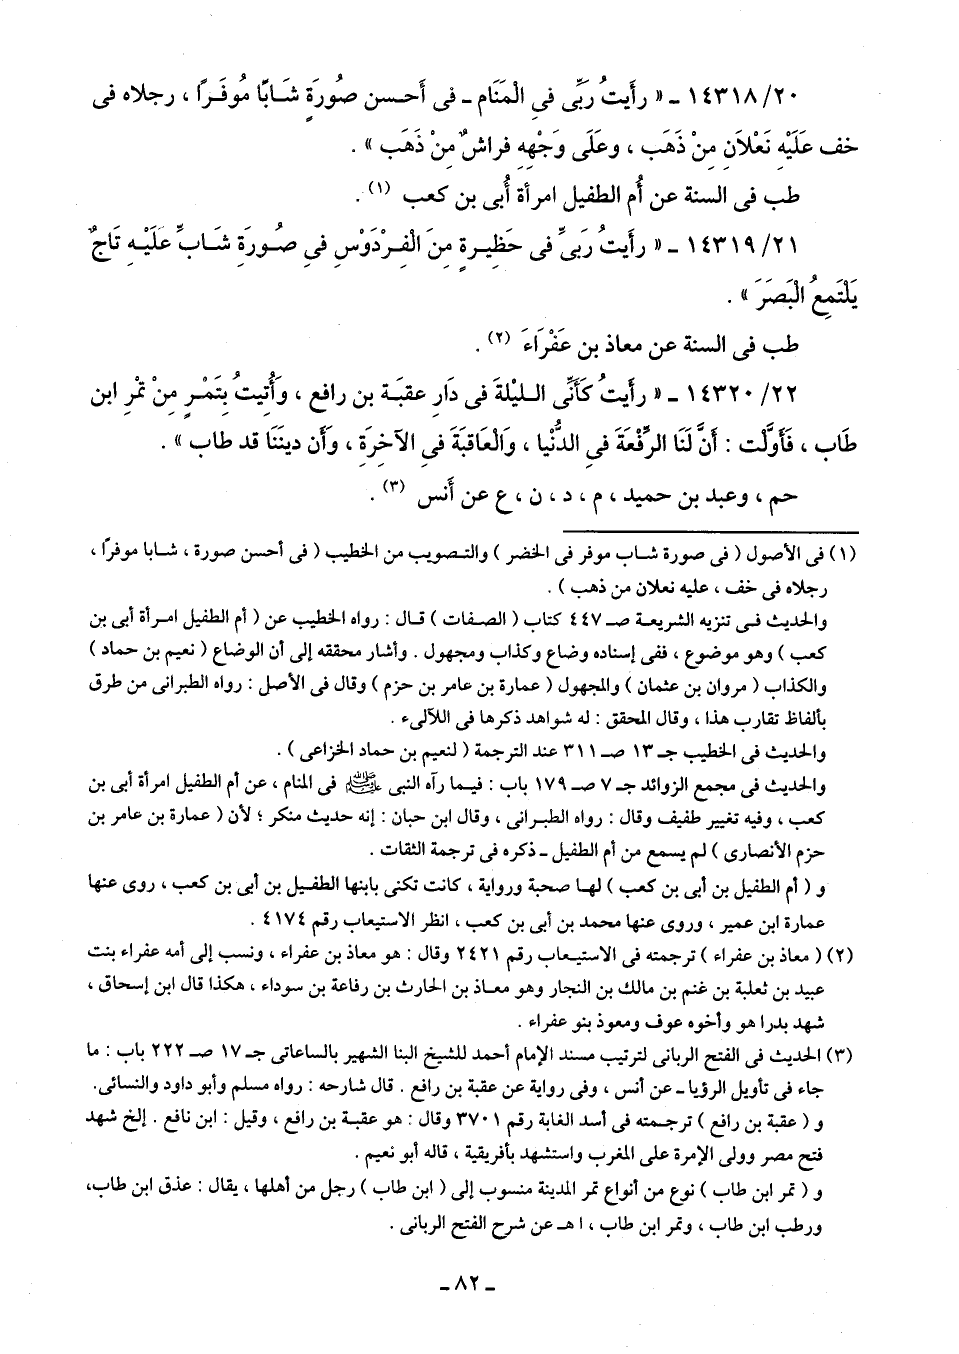 ١٤٣١٨/٢٠ ـ « رأَيتُ رَبِّي فِي الْمَنَام ـ فى أَحـسن صُورَةٍ شَـابًا مُوفَـرًا ، رجلاه فى
خف عَلَيْهِ نَعْلاَنِ مِنْ ذَهَب ، وعَلَى وَجْهِهِ فراشٌ مِنْ ذَهَب » .
طب فى السنة عن أُم الطفيل امرأة أُبى بن كعب (١) .
١٤٣١٩/٢١ ـ « رأَيتُ رَبىِّ فى حَظِيـرةٍ مِنَ الْفِـرْدَوْسِ فىِ صُـورَةِ شَـابٍّ عَلَيْـهِ تَاجٌ
يَلْتَمِعُ الْبَصَرَ » .
طب فى السنة عن معاذ بن عَفْرَاءَ (٢) .
١٤٣٢٠/٢٢ ـ « رأَيتُ كَأَنِّى اللـيْلةَ فى دَارِ عقبَـة بن رافع ، وَأُتيتُ بِتَمْـرٍ مِنْ تمْرِ ابن
طَاب ، فَأَوَّلْت : أَنَّ لَنَا الرِّفْعَةَ فىِ الدُّنْيا ، وَالْعَاقبَةَ فىِ الآخِرَةِ ، وَأَن ديننَا قد طاب » .
حم ، وعبد بن حميد ، م ، د ، ن ، ع عن أَنس (٣) .
(١) فى الأصول ( فى صورة شـاب موفر فى الخضر ) والتـصويب من الخطيب ( فى أحسن صورة ، شـابا موفرًا ،
رجلاه فى خف ، عليه نعلان من ذهب ) .
والحديث فـى تنزيه الشريعـة صـ ٤٤٧ كتاب ( الصـفات ) قـال : رواه الخطيب عن ( أم الطفيل امـرأة أبى بن
كعب ) وهو موضوع ، ففى إسناده وضاع وكذاب ومجهول . وأشار محققه إلى أن الوضاع ( نعيم بن حماد )
والكذاب ( مروان بن عثمان ) والمجهول ( عمارة بن عامر بن حزم ) وقال فى الأصل : رواه الطبرانى من طرق
بألفاظ تقارب هذا ، وقال المحقق : له شواهد ذكرها فى اللآلىء .
والحديث فى الخطيب جـ ١٣ صـ ٣١١ عند الترجمة ( لنعيم بن حماد الخزاعى ) .
والحديث فى مجمع الزوائد جـ ٧ صـ ١٧٩ باب : فيـما رآه النبى ﷺ فى المنام ، عن أم الطفيل امرأة أبى بن
كعب ، وفيه تغيير طفيف وقال : رواه الطبـرانى ، وقال ابن حبان : إنه حديث منكر ؛ لأن ( عمارة بن عامر بن
حزم الأنصارى ) لم يسمع من أم الطفيل ـ ذكره فى ترجمة الثقات .
و ( أم الطفيل بن أبى بن كعب ) لهـا صحبة ورواية ، كانت تكنى بابنها الطفـيل بن أبى بن كعب ، روى عنها
عمارة ابن عمير ، وروى عنها محمد بن أبى بن كعب ، انظر الاستيعاب رقم ٤١٧٤ .
(٢) ( معاذ بن عفراء ) ترجمته فى الاستيـعاب رقم ٢٤٢١ وقال : هو معاذ بن عفراء ، ونسب إلى أمه عفراء بنت
عبيد بن ثعلبة بن غنم بن مالك بن النجار وهو معـاذ بن الحارث بن رفاعة بن سوداء ، هكذا قال ابن إسحاق ،
شهد بدرا هو وأخوه عوف ومعوذ بنو عفراء .
(٣) الحديث فى الفتح الربانى لترتيب مسند الإمام أحمد للشيخ البنا الشهير بالساعاتى جـ ١٧ صـ ٢٢٢ باب : ما
جاء فى تأويل الرؤيا ـ عن أنس ، وفى رواية عن عقبة بن رافع . قال شارحه : رواه مسلم وأبو داود والنسائى.
و ( عقبة بن رافع ) ترجـمته فى أسد الغابة رقم ٣٧٠١ وقال : هو عقبـة بن رافع ، وقيل : ابن نافع . إلخ شهد
فتح مصر وولى الإمرة على المغرب واستشهد بأفريقية ، قاله أبو نعيم .
و ( تمر ابن طاب ) نوع من أنواع تمر المدينة منسوب إلى ( ابن طاب ) رجل من أهلها ، يقال : عذق ابن طاب،
ورطب ابن طاب ، وتمر ابن طاب ، ا هـ عن شرح الفتح الربانى .
ـ ٨٢ ـ